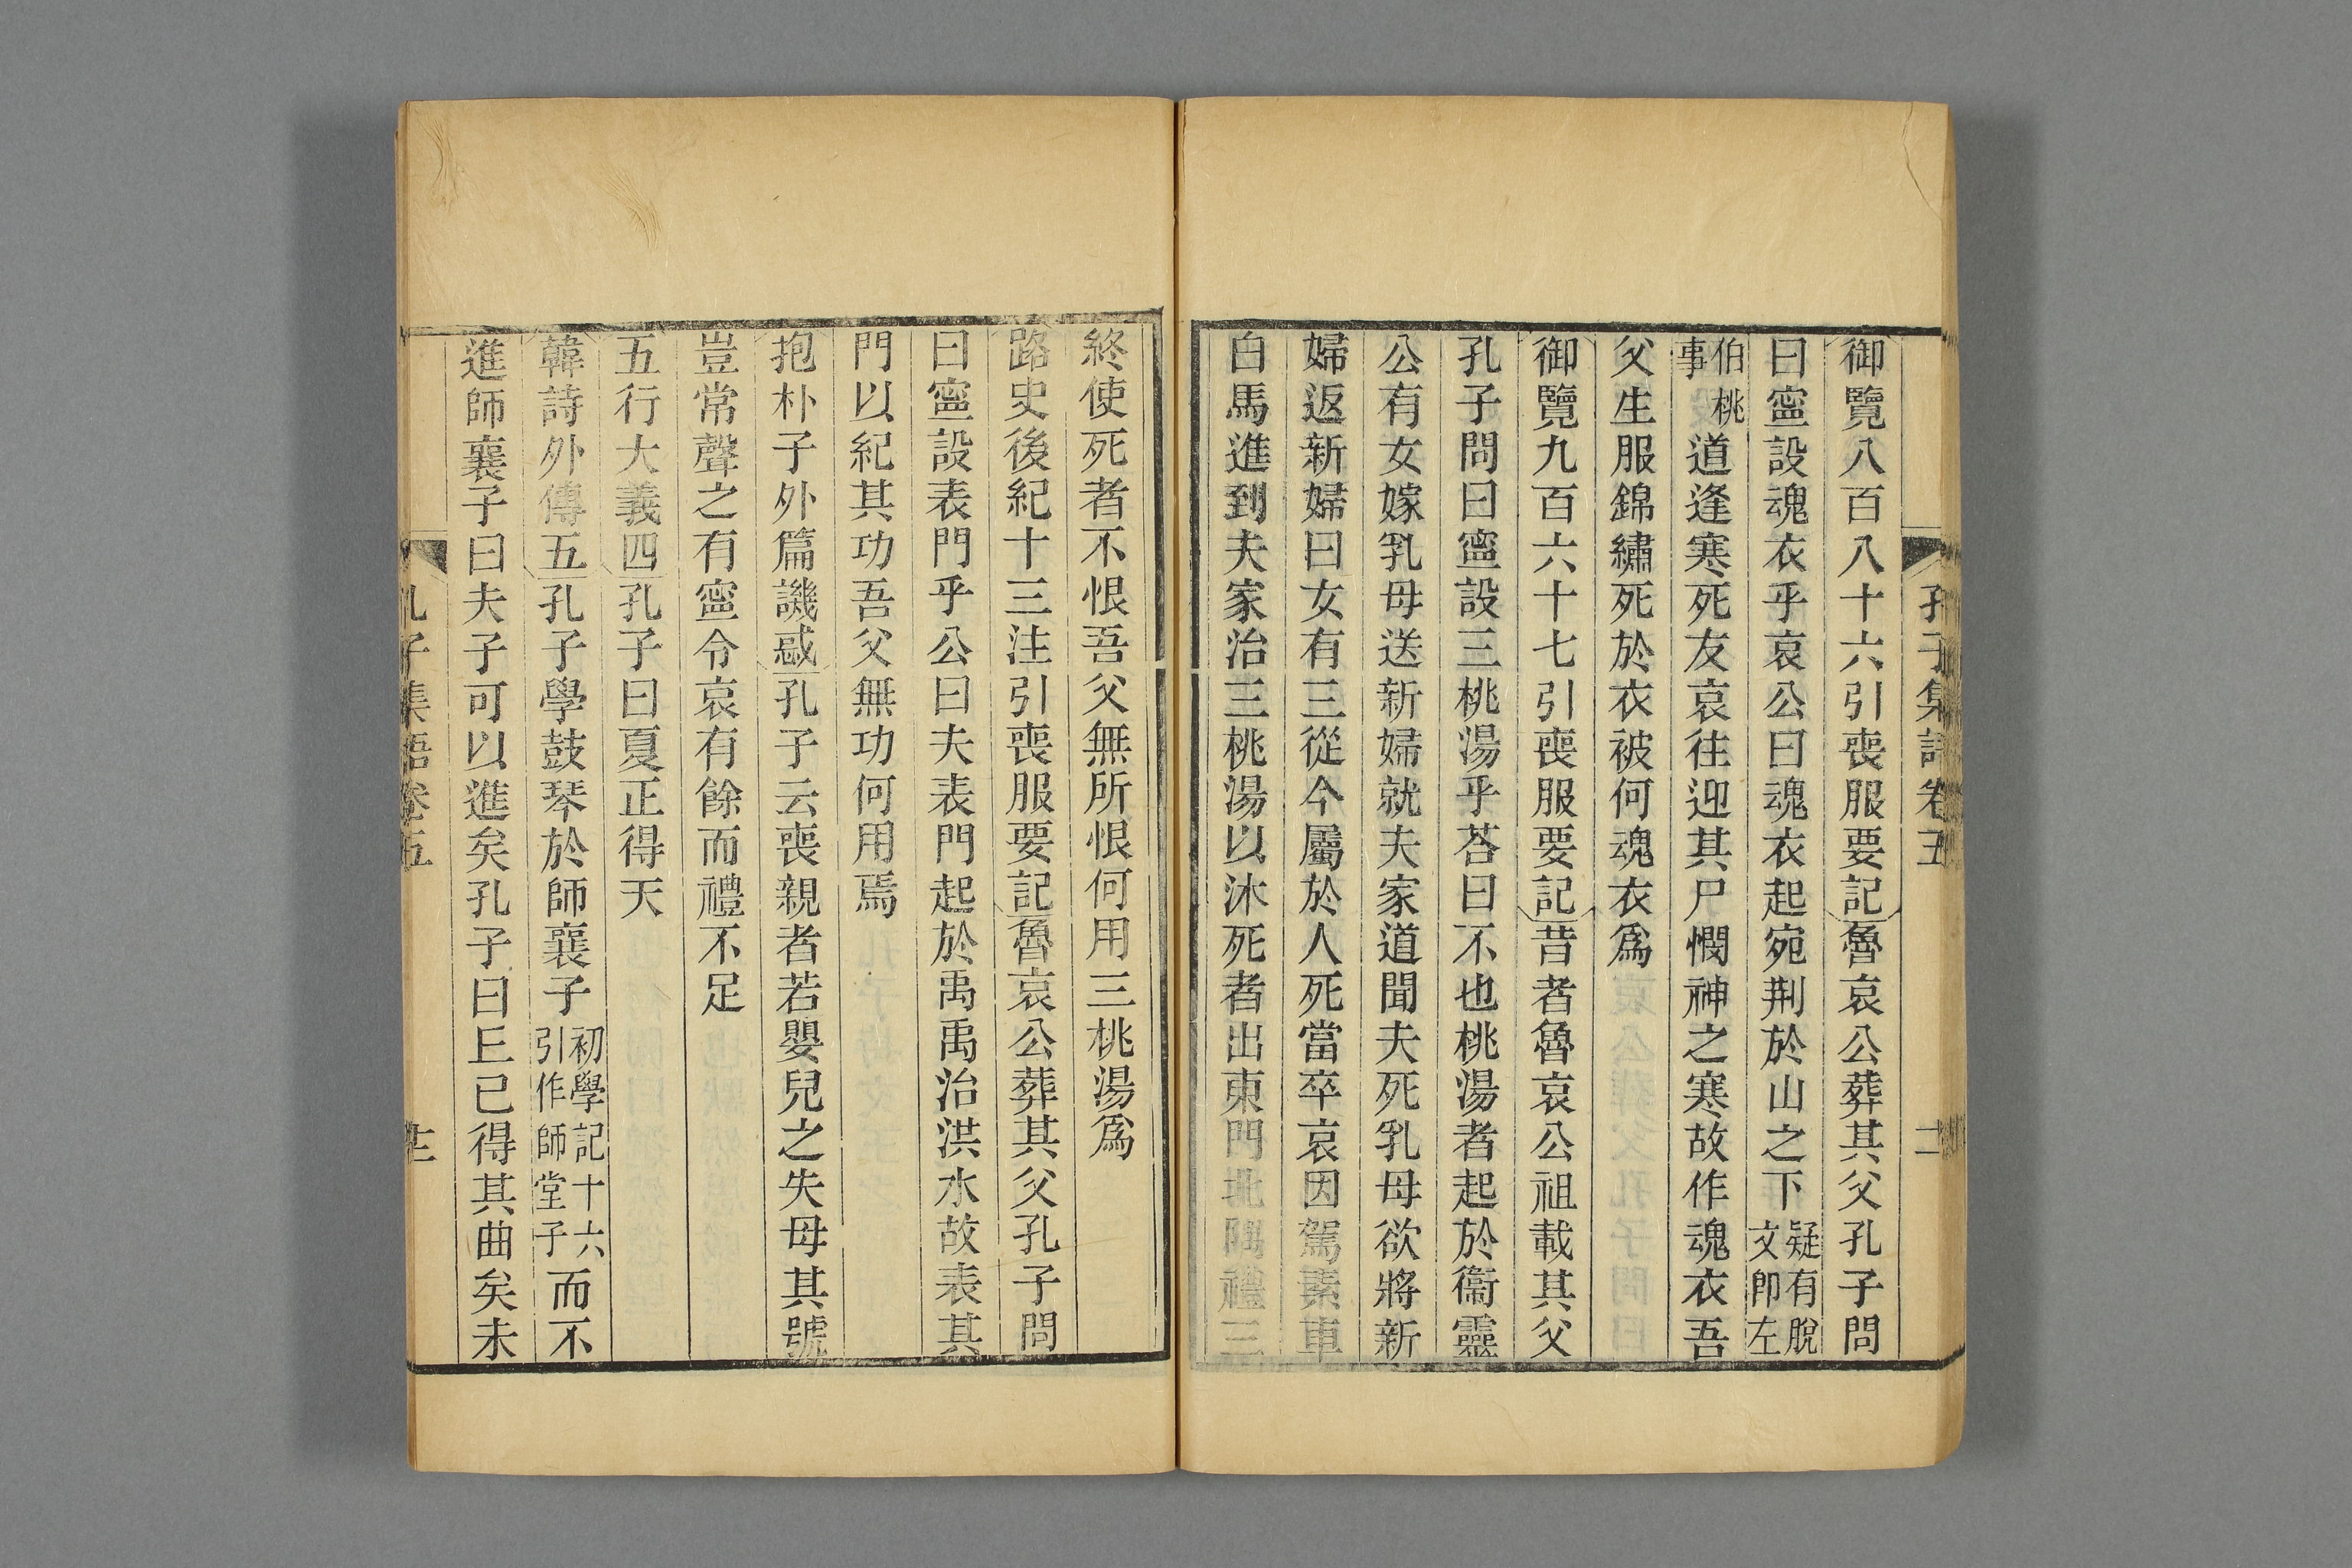 孔子集語卷五 二
御覽八百八十六引喪服要記魯哀公葬其父孔子問
曰寍設魂衣乎哀公曰魂衣起宛荆於山之下疑有脫文卽左
伯桃事道逢寒死友哀往迎其尸憫神之寒故作魂衣吾
父生服錦繡死於衣被何魂衣爲
御覽九百六十七引喪服要記昔者魯哀公祖載其父
孔子問曰寍設三桃湯乎荅曰不也桃湯者起於衞靈
公有女嫁乳母送新婦就夫家道聞夫死乳母欲將新
婦返新婦曰女有三從今屬於人死當卒哀因駕素車
白馬進到夫家治三桃湯以沐死者出東門北隅禮三
終使死者不恨吾父無所恨何用三桃湯爲
路史後紀十三注引喪服要記魯哀公葬其父孔子問
曰寍設表門乎公曰夫表門起於禹禹治洪水故表其
門以紀其功吾父無功何用焉
抱朴子外篇譏惑孔子云喪親者若嬰兒之失母其號
豈常聲之有寍令哀有餘而禮不足
五行大義四孔子曰夏正得天
韓詩外傳五孔子學鼓琴於師襄子初學記十六引作師堂子而不
進師襄子曰夫子可以進矣孔子曰丘已得其曲矣未
孔子集語卷五